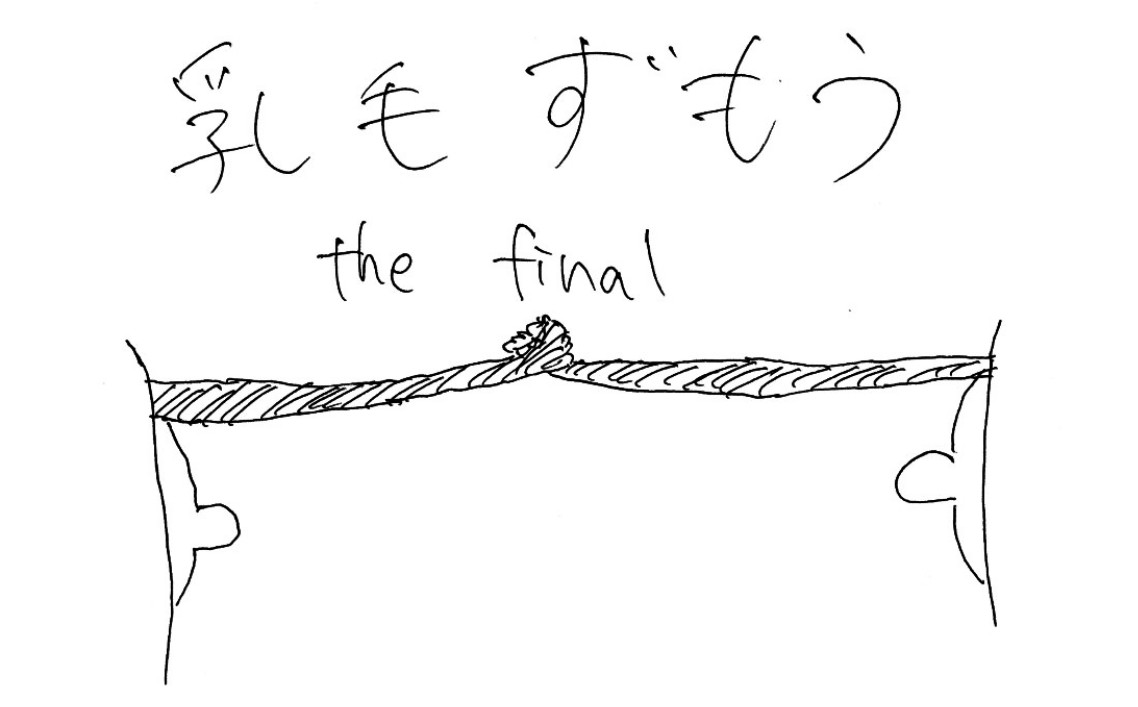 乳毛ずもう
the final